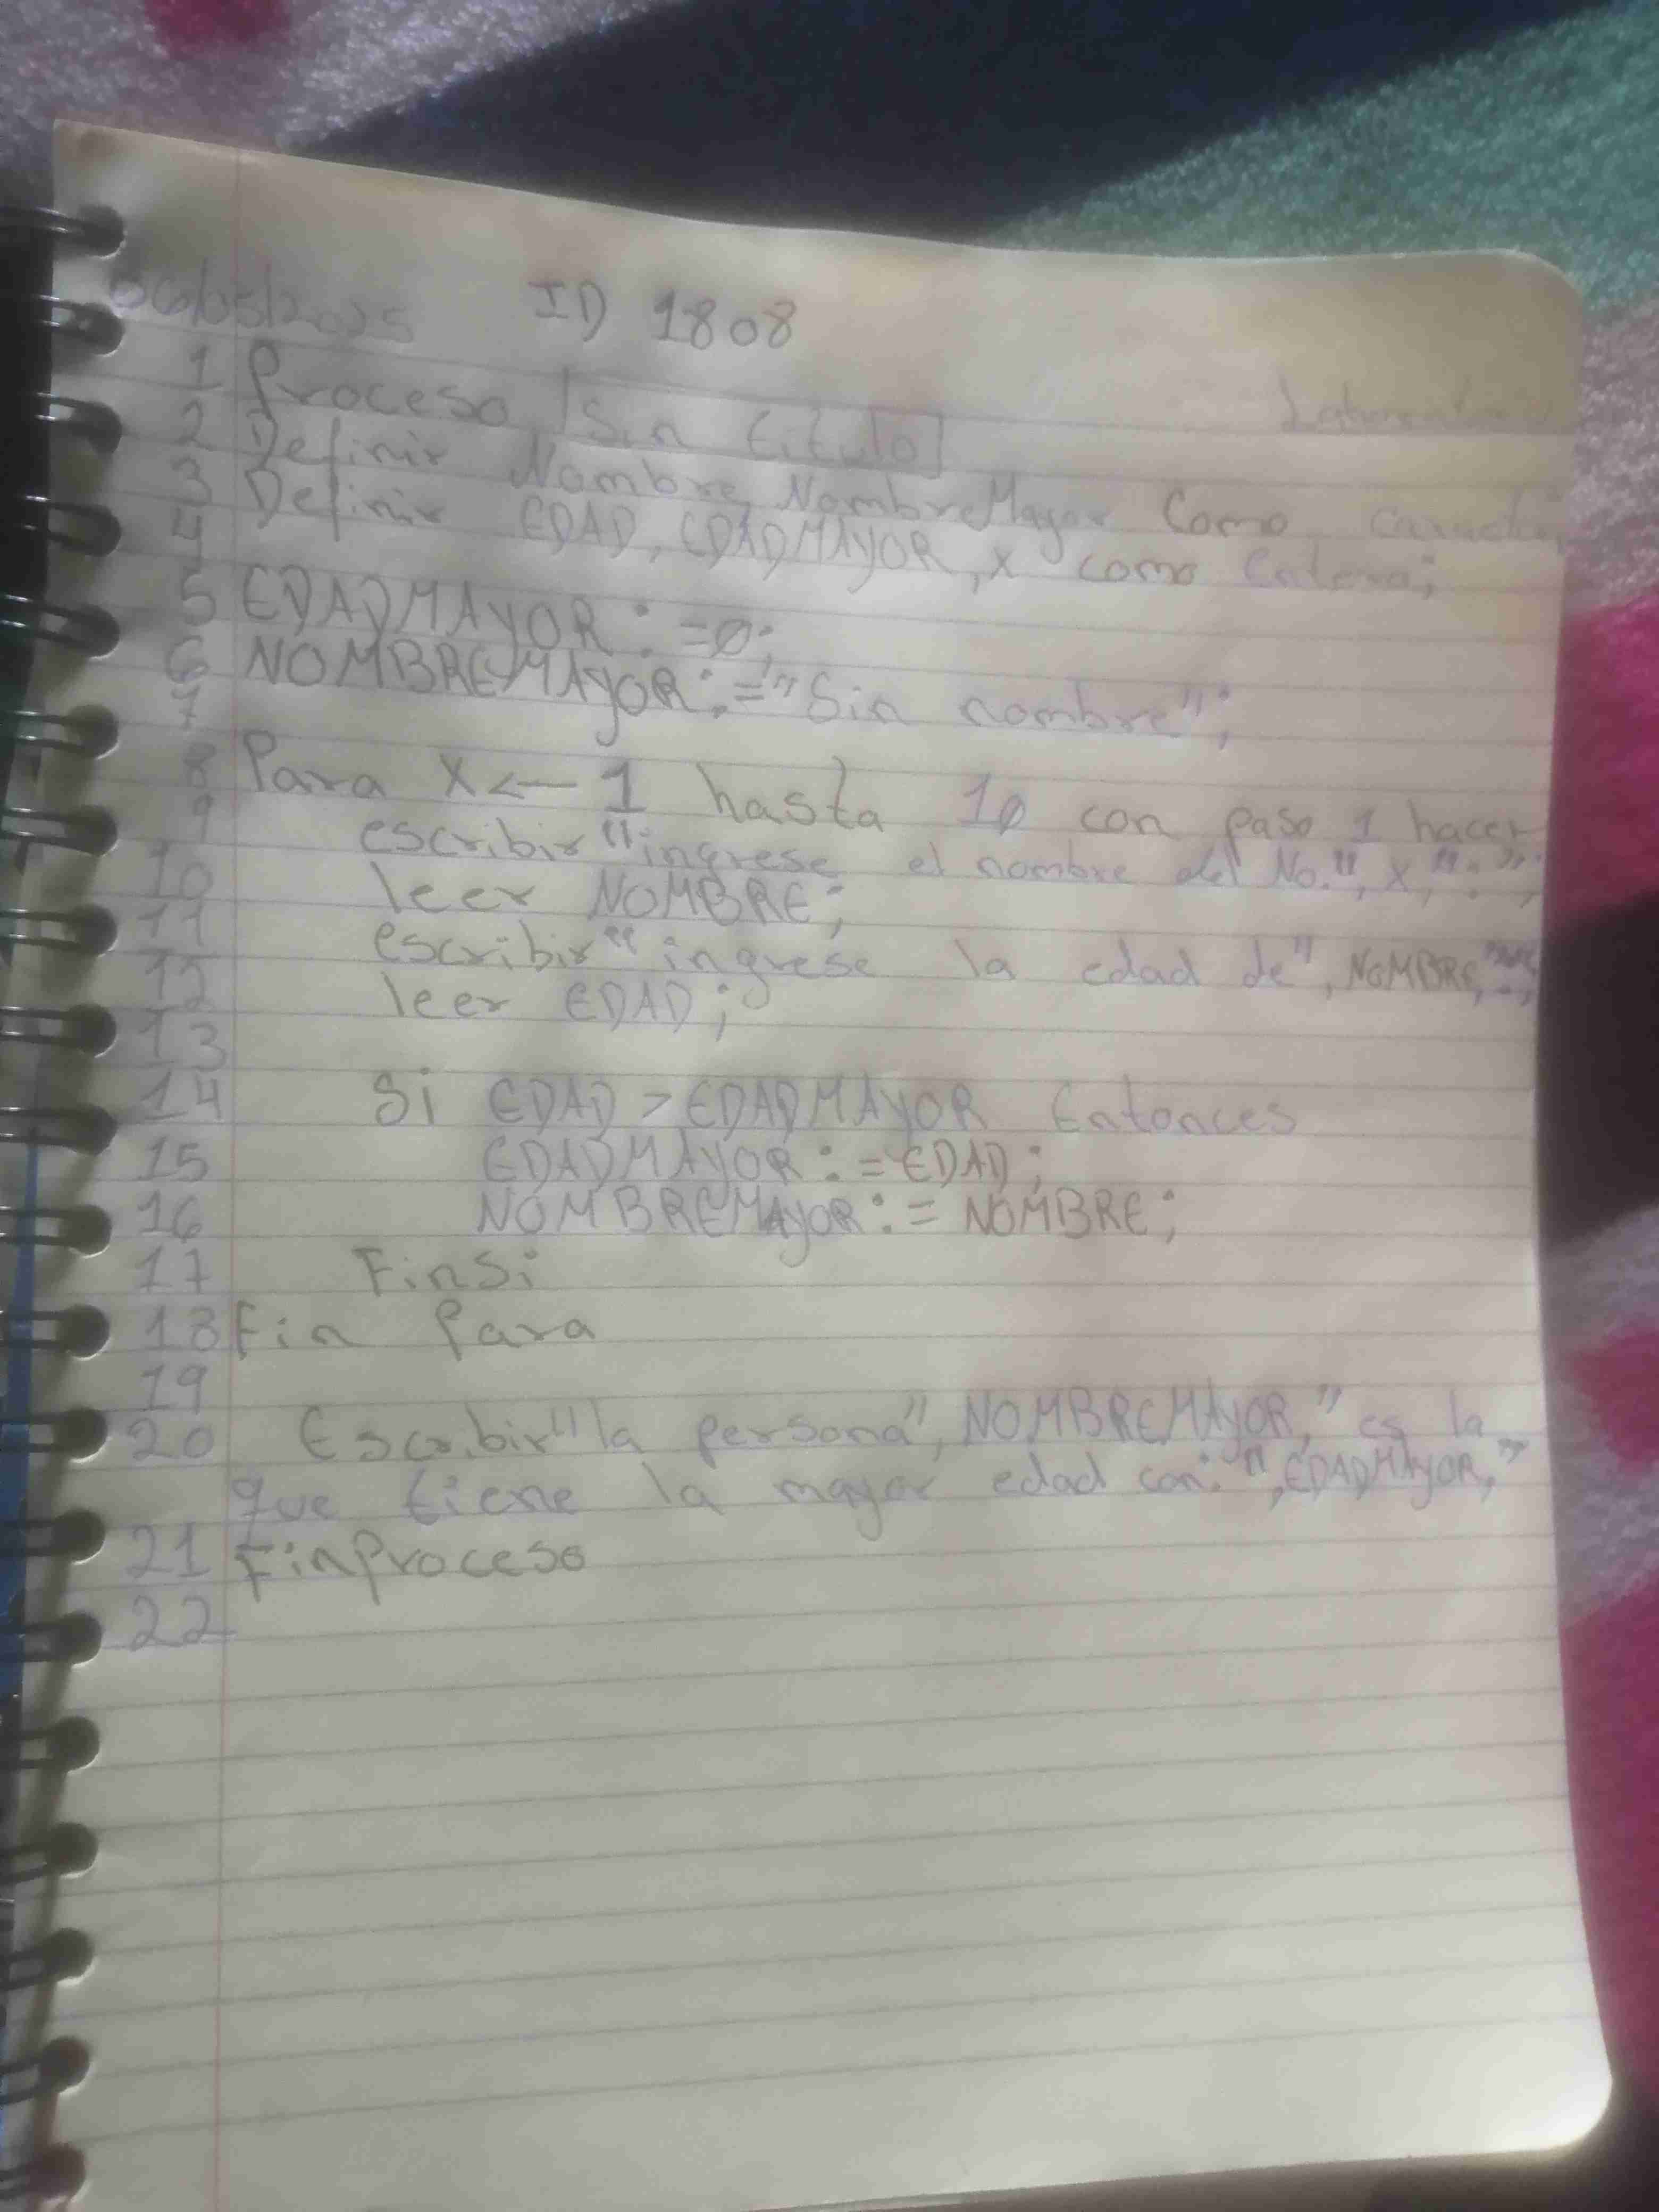 06/05/2025 ID 1808
1 Proceso [Sin titulo]
2 Definir Nombre, NombreMayor Como
3 Definir EDAD, EDADMAYOR, x como Entero;
4
5 EDADMAYOR:=0;
6 NOMBREMAYOR:="Sin nombre";
7
8 Para X<-1 hasta 10 con paso 1 hacer
9 escribir "ingrese el nombre del No.", x, ":";
10 leer NOMBRE;
11 escribir "ingrese la edad de", NOMBRE, ":";
12 leer EDAD;
13
14 Si EDAD > EDADMAYOR Entonces
15 EDADMAYOR:=EDAD;
16 NOMBREMAYOR:= NOMBRE;
17 FinSi
18 Fin Para
19
20 Escribir "la persona", NOMBREMAYOR, "es la
que tiene la mayor edad con: ", EDADMAYOR, "
21 FinProceso
22